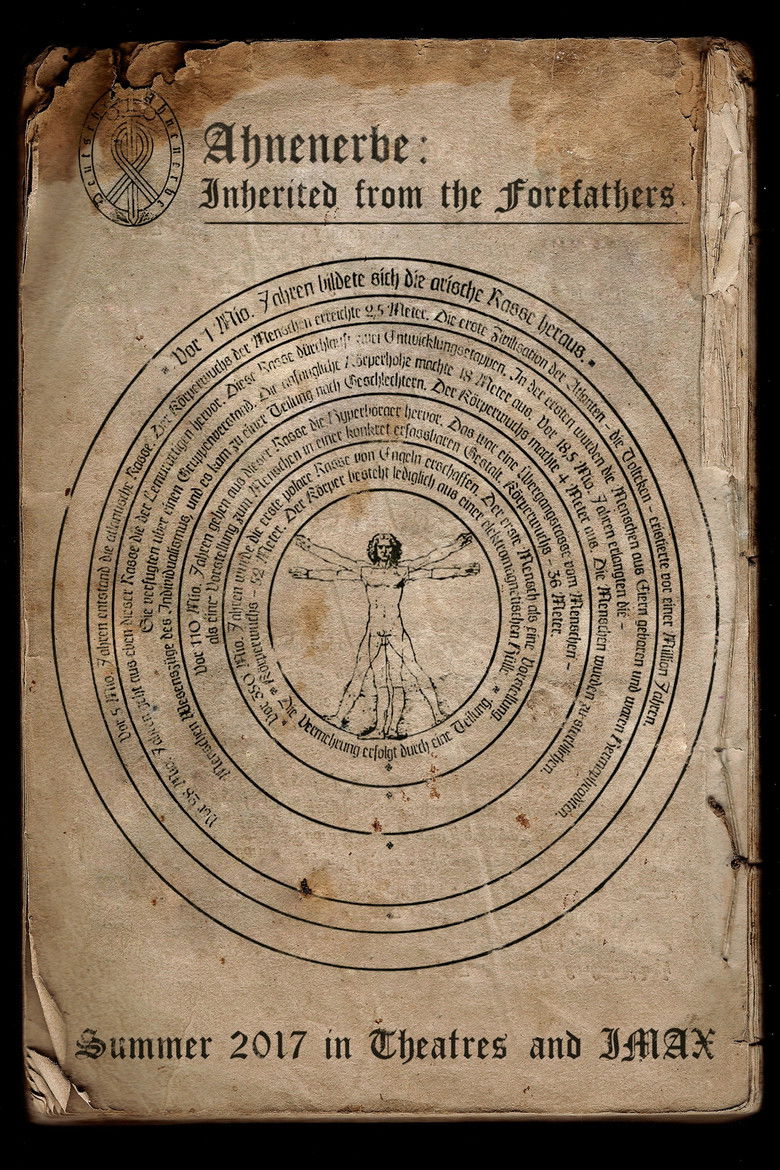 Deutsches Ahnenerbe
Ahnenerbe:
Inherited from the Forefathers.
Vor 1 Mio. Jahren bildete sich die arische Rasse heraus.
Vor 5 Mio. Jahren entstand die atlantische Rasse. Der Körperwuchs der Menschen erreichte 2,5 Meter. Die erste Zivilisation der Atlanten - die Tolteken - existierte vor einer Million Jahren.
Vor 28 Mio. Jahren geht aus eben dieser Rasse die der Lemurartigen hervor. Diese Rasse durchlauft zwei Entwicklungsetappen. In der ersten wurden die Menschen aus Eiern geboren und waren Hermaphroditen.
Sie verfugten uber einen Gruppenverstand. Die anfangliche Körperhohe machte 18 Meter aus. Vor 18,5 Mio. Jahren erlangten die -
Menschen Wesenszüge des Individualismus, und es kam zu einer Teilung nach Geschlechtern. Der Körperwuchs machte 4 Meter aus. Die Menschen wurden zu sterblichen.
Vor 110 Mio. Jahren gehen aus dieser Rasse die Hyperboraer hervor. Das war eine übergangsrasse vom Menschen-
als eine Vorstellung zum Menschen in einer konkret erfassbaren Gestalt. Körperwuchs - 36 Meter.
Vor 350 Mio. Jahren wurde die erste polare Rasse von Engeln erschaffen. Der erste Mensch als eine Vorstellung.
Körperwuchs - 52 Meter. Der Körper besteht lediglich aus einer elektromagnetischen Hülle.
Die Vermehrung erfolgt durch eine Teilung.
Summer 2017 in Theatres and IMAX